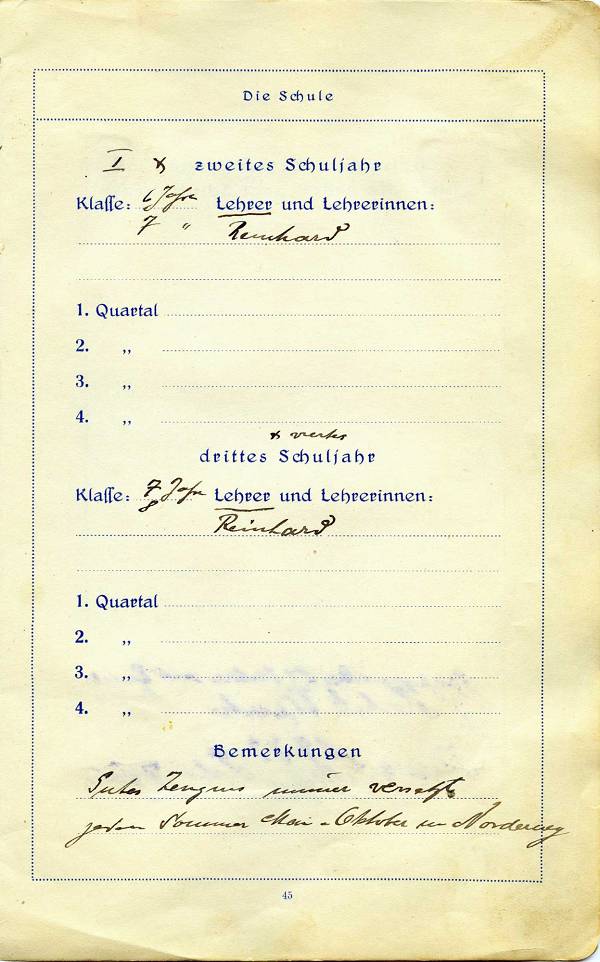 Die Schule
I & zweites Schuljahr
Klasse: 6 Jahre Lehrer und Lehrerinnen:
7 " Reinhard
1. Quartal
2. „
3. „
4. „
& viertes
drittes Schuljahr
Klasse: 7 Jahre Lehrer und Lehrerinnen:
8 Reinhard
1. Quartal
2. „
3. „
4. „
Bemerkungen
Gutes Zeugnis immer versetzt
jeden Sommer Mai - Oktober in Norderney
45